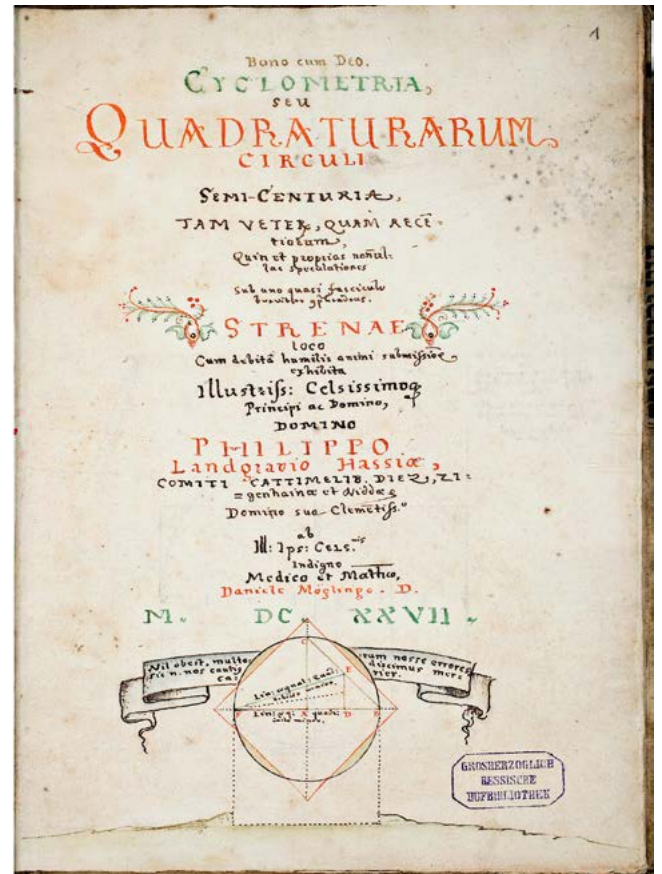 1
Bono cum DEO.
CYCLOMETRIA,
SEU
QUADRATURARUM
CIRCULI
SEMI-CENTURIA,
TAM VETER, QUAM RECE-
tiorum,
Quin et proprias
lae speculationes
Sub uno quasi fasciculo
breviter
STRENAE
loco
Cum debita humilis animi submissione
exhibita
Illustriss: Celsissimoq
Principi ac Domino,
DOMINO
PHILIPPO
Landgravio Hassiæ,
COMITI CATTIMELIB. DIEZ, ZI=
=genhainæ et Niddæ
Domino suo Clemetiss.
ab
Ill: Ips: Cels.
Indigno
Medico et Mathco,
Daniele Möglingo. D.
M. DC XXVII.
Nil obest, multorum nosse errores
Sic n. nos cautis discimus mer
ca: rier.
C
E
Lin: æqual: quad:
A D
Lin: quad:
GROSHERZOGLICH
HESSISCHE
HOFBIBLIOTHEK